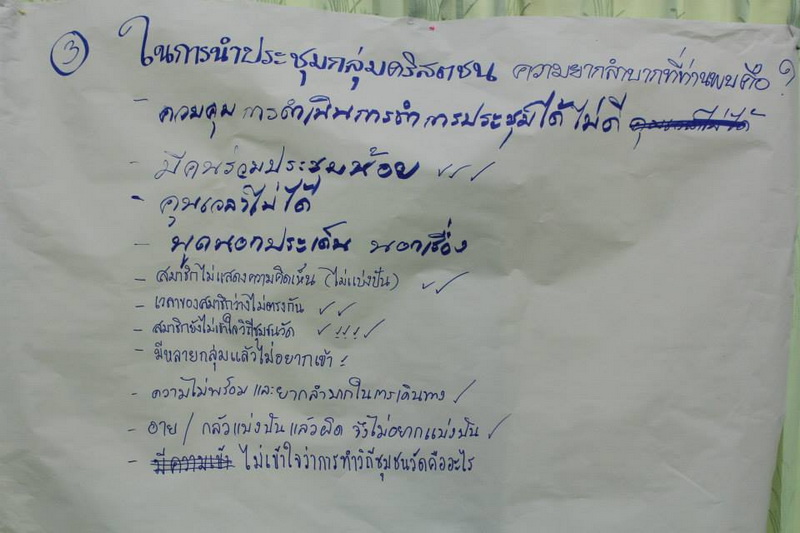 ③ ในการนำประชุมกลุ่มคริสตชน ความยากลำบากที่ท่านพบคือ ?
- ควบคุม การดำเนินการทำการประชุมได้ ไม่ดี
- มีคนร่วมประชุมน้อย ✓✓✓
- คุมเวลาไม่ได้
- พูดนอกประเด็น นอกเรื่อง
- สมาชิกไม่แสดงความคิดเห็น (ไม่แบ่งปัน) ✓✓
- เวลาของสมาชิกว่างไม่ตรงกัน ✓✓
- สมาชิกยังไม่เข้าใจวิถีชุมชนวัด ✓
- มีหลายกลุ่มแล้วไม่อยากเข้า
- ความไม่พร้อม และยากลำบากในการเดินทาง ✓
- อาย / กลัวแบ่งปันแล้วผิด จึงไม่อยากแบ่งปัน ✓
- มีความเข้า ไม่เข้าใจว่าการทำวิถีชุมชนวัดคืออะไร